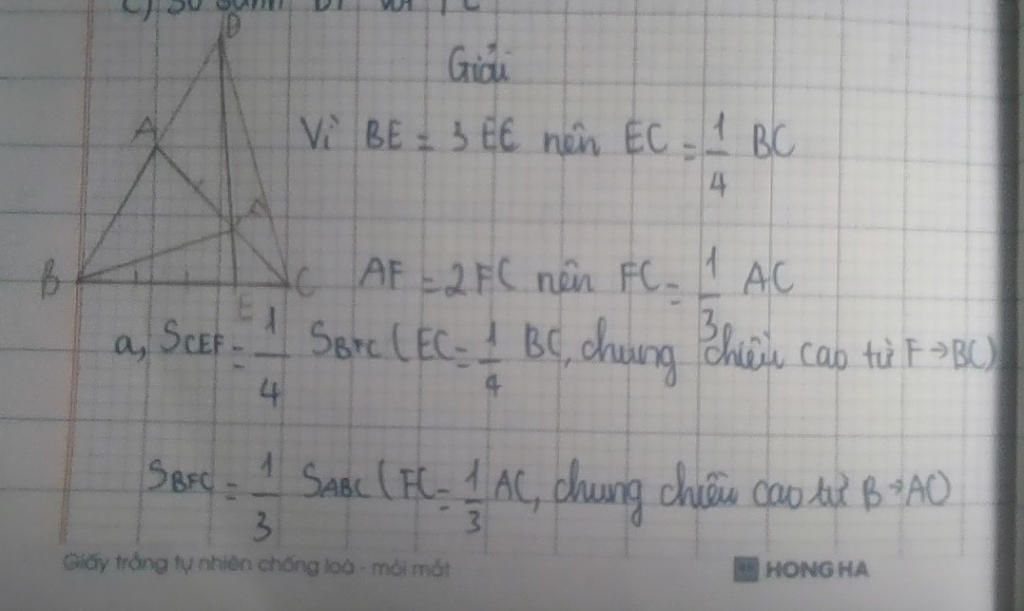 c) So sánh
D
Giải
A
Vì BE = 3 EC nên EC = 1/4 BC
F
B
C
AF = 2FC nên FC = 1/3 AC
E
a, SCEF = 1/4 SBFC (EC = 1/4 BC, chung chiều cao từ F→BC)
SBFC = 1/3 SABC (FC = 1/3 AC, chung chiều cao từ B→AC)
Giấy trắng tự nhiên chống loá - mỏi mắt
HONG HA